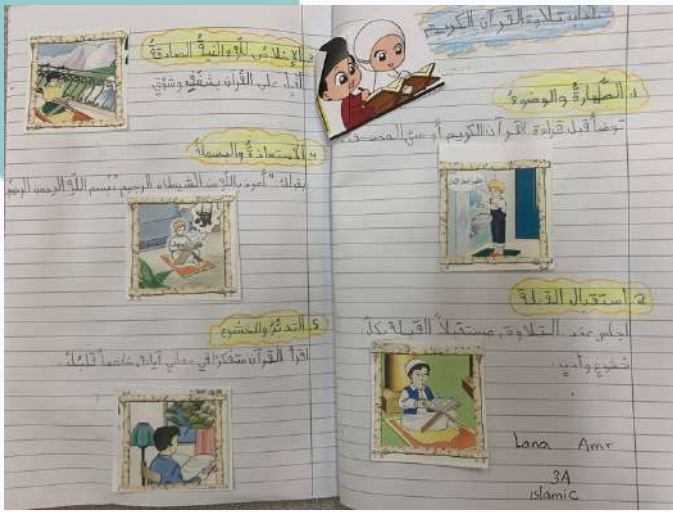 تلاوة القرآن الكريم
1. الطهارة والوضوء
توضأ قبل قراءة القرآن الكريم أو مس المصحف
2 استقبال القبلة
اجلس عند التلاوة، مستقبلاً القبلة بكل
خشوع وأدب.
Lana Amr
3A
islamic
الإخلاص لله والنية الصادقة
أقبل على القرآن بشغف وشوق
4 الاستعاذة والبسملة
بقولك: "أعوذ بالله من الشيطان الرجيم" "بسم الله الرحمن الرحيم
5 التدبر والخشوع
اقرأ القرآن متفكرا في معاني آياته، خاشعاً قلبك.